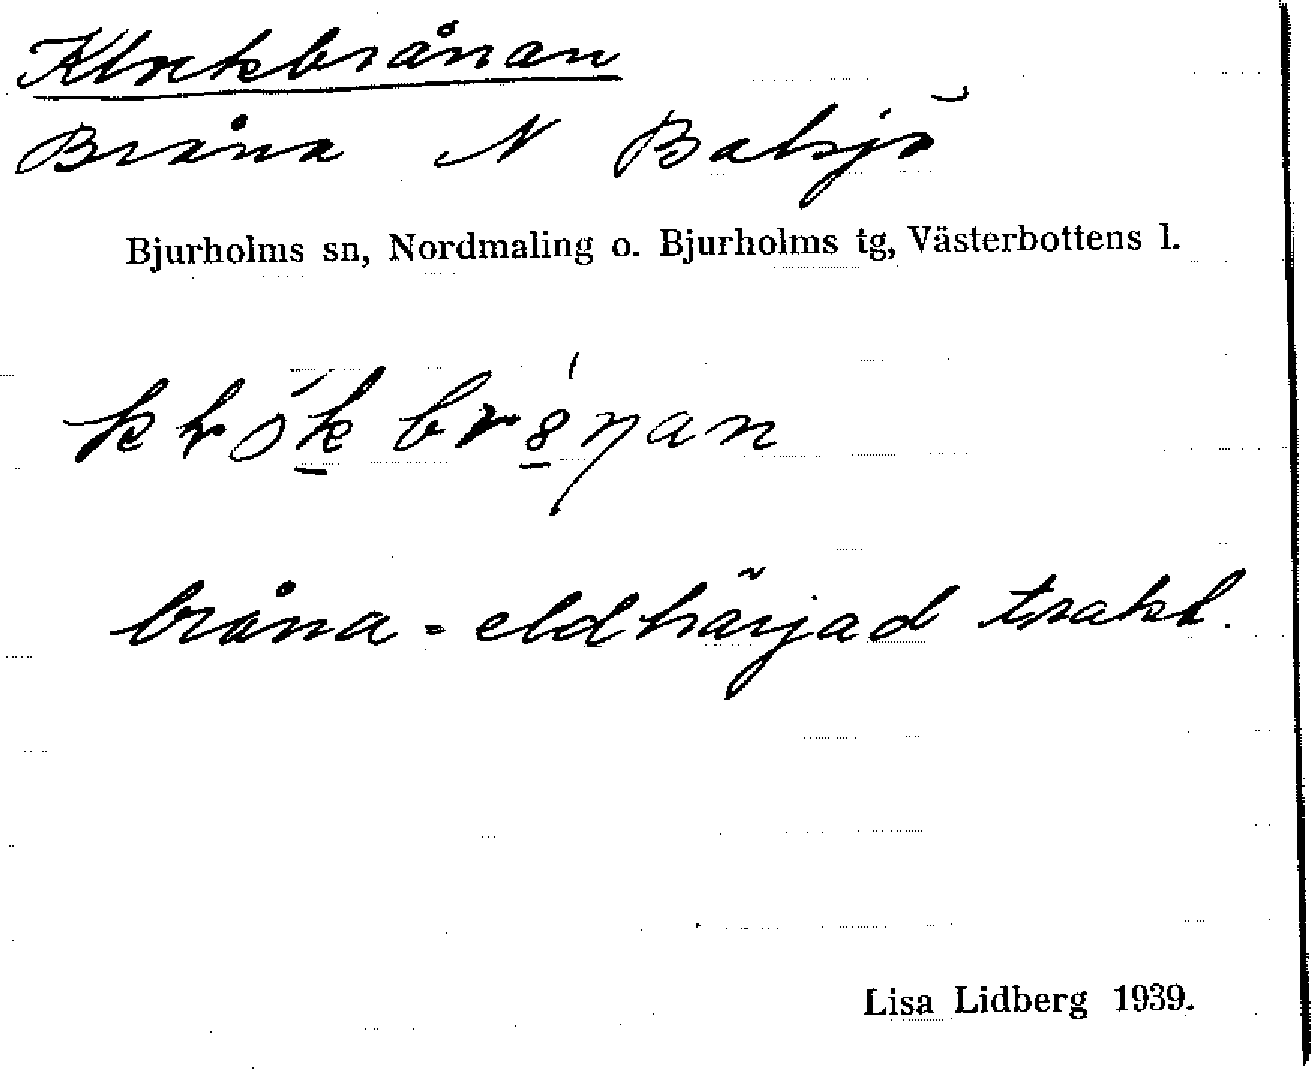 Klockbrånan
Bråna N Balsjö
Bjurholms sn, Nordmaling o. Bjurholms tg, Västerbottens l.
bråna = eldhärjad trakt.
Lisa Lidberg 1939.